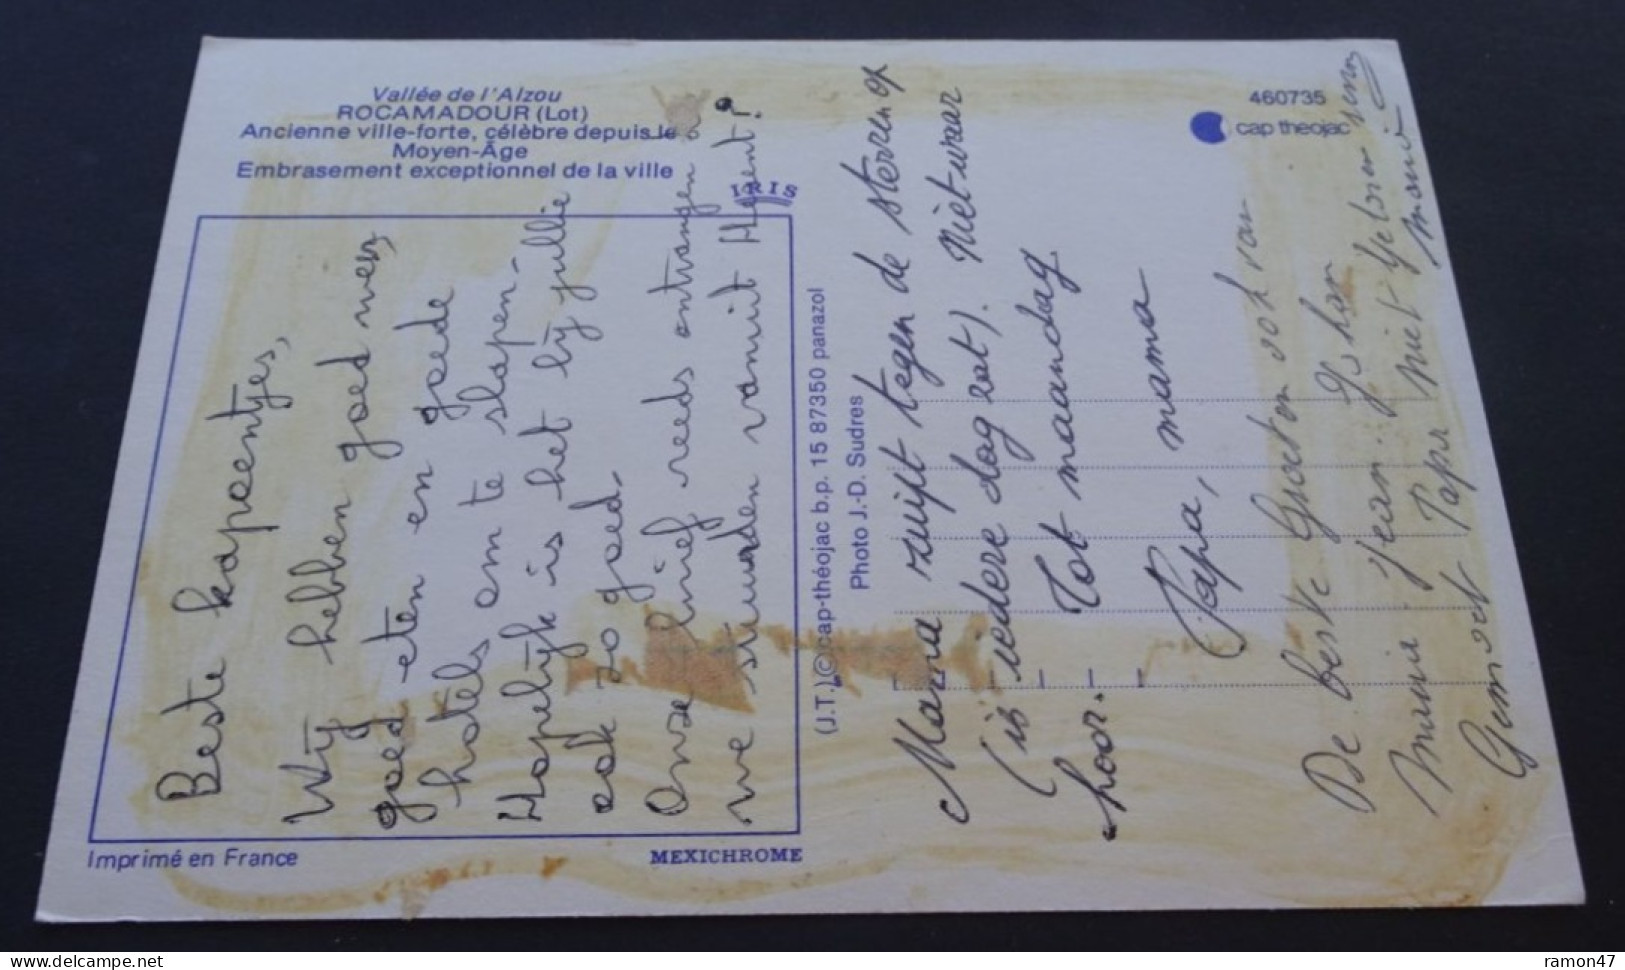 Vallée de l'Alzou
ROCAMADOUR (Lot)
Ancienne ville-forte, célèbre depuis le
Moyen-Âge
Embrasement exceptionnel de la ville
IRIS
460735
cap theojac
Beste kapoentjes,
Wij hebben goed weer,
goed eten en goede
hotels om te slapen.
Hopelijk is het bij jullie
ook zo goed.
Onze brief reeds ontvangen
we stuurden vanuit
(J.T.) © cap-théojac b.p. 15 87350 panazol
Photo J.-D. Sudres
Mama zuipt tegen de sterren op
(is iedere dag zat). Niet waar
hoor. Tot maandag
Papa, mama
De beste Groeten ook van
Gemaakt Papa niet
Imprimé en France
MEXICHROME
delcampe.net
ramon47